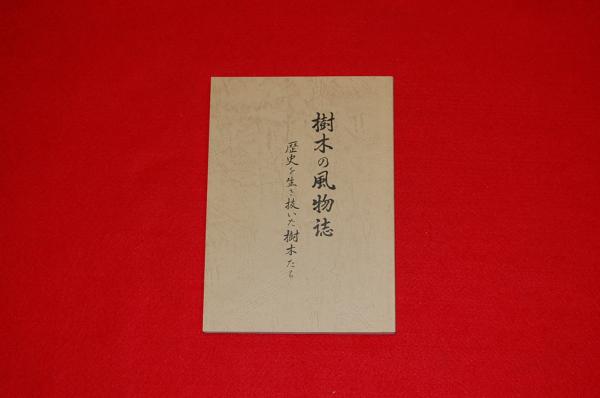 樹木の風物誌
歴史を生き抜いた樹木たち